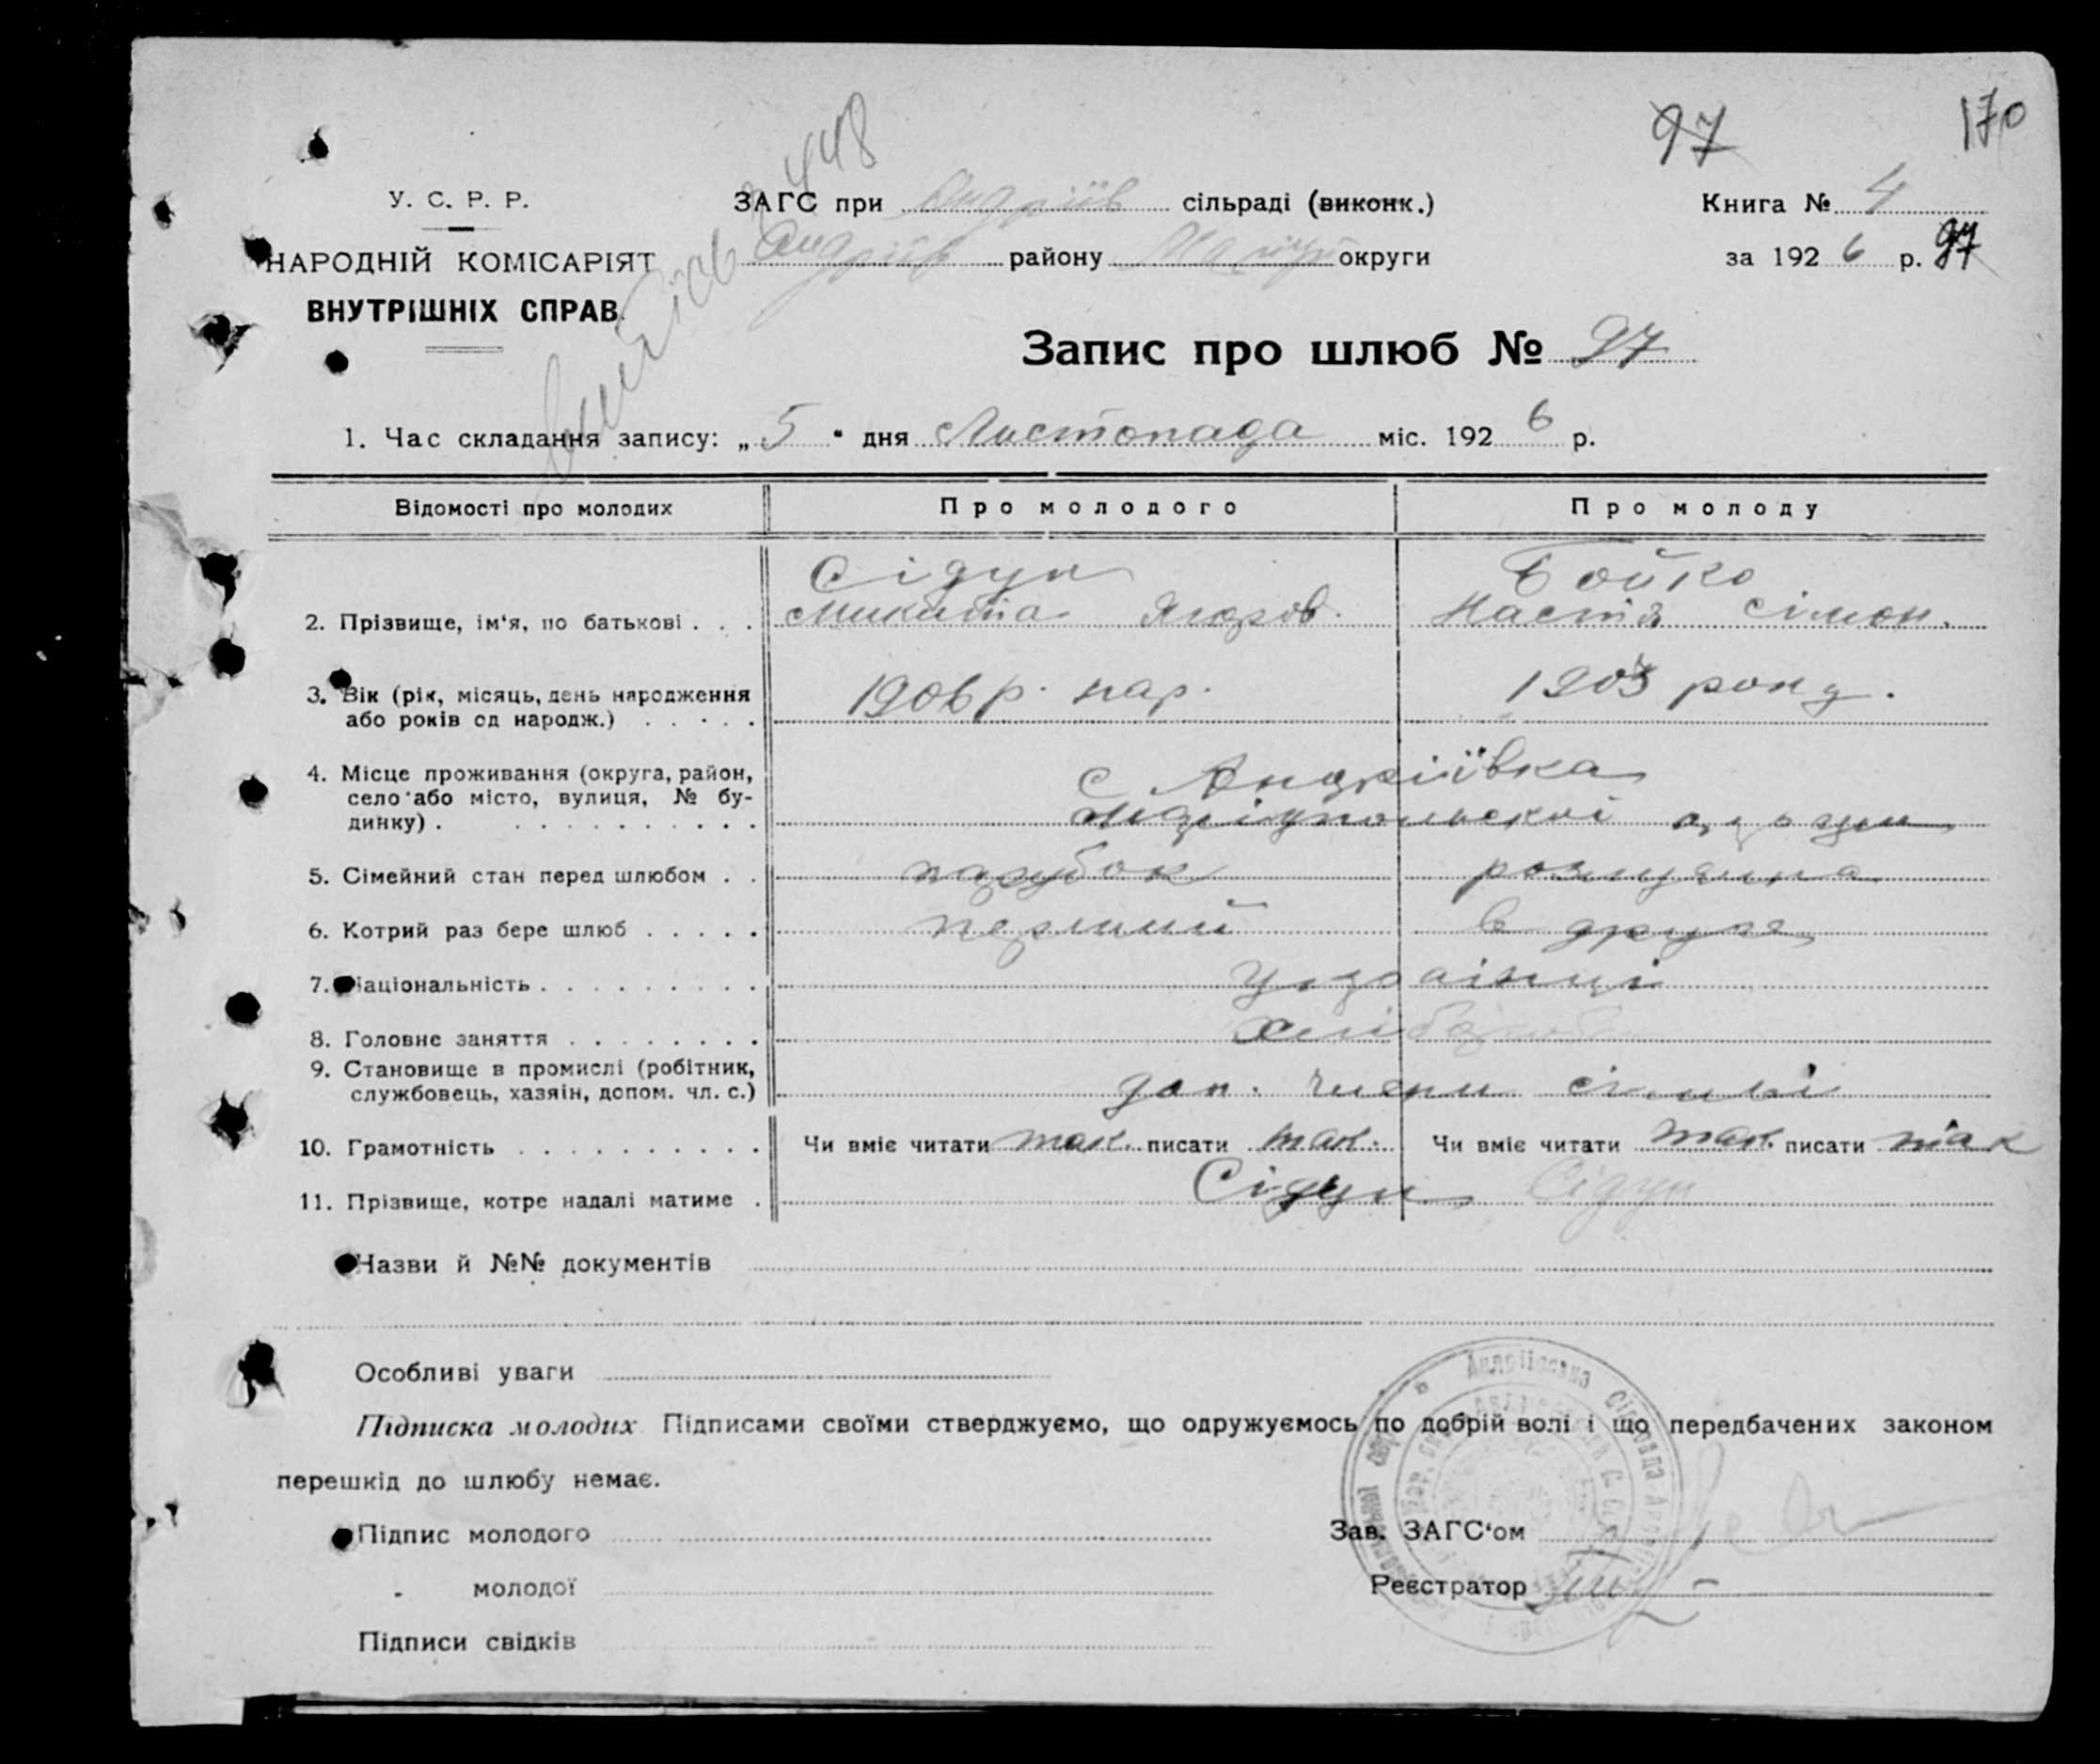 97 170
448
У. С. Р. Р. ЗАГС при Андріїв сільраді (виконк.) Книга № 4
НАРОДНІЙ КОМІСАРІЯТ Андріїв району Маріуп округи за 1926 р. 97
ВНУТРІШНІХ СПРАВ.
Запис про шлюб № 97
1. Час складання запису: „5" дня Листопада міс. 1926 р.
Відомості про молодих Про молодого Про молоду
Сідун Бойко
2. Прізвище, ім'я, по батькові . . . Микита Настя Сімон.
3. Вік (рік, місяць, день народження 1906 р. нар. 1903 року.
або років од народж.) . . . . .
4. Місце проживання (округа, район, с Андріївка
село або місто, вулиця, № бу-
динку) . . . . . . . . . . . Маріупольскої
5. Сімейний стан перед шлюбом . . парубок
6. Котрий раз бере шлюб . . . . . перший в друге
7. Національність . . . . . . . . . українці
8. Головне заняття . . . . . . . .
9. Становище в промислі (робітник,
службовець, хазяїн, допом. чл. с.) доп. члени сімьї
10. Грамотність . . . . . . . . . . Чи вміє читати так. писати так. Чи вміє читати так. писати так
11. Прізвище, котре надалі матиме . Сідун Сідун
Назви й №№ документів
Особливі уваги
Підписка молодих Підписами своїми стверджуємо, що одружуємось по добрій волі і що передбачених законом
перешкід до шлюбу немає.
Підпис молодого Зав. ЗАГС'ом
„ молодої Реєстратор
Підписи свідків
Андріївська Сільрада